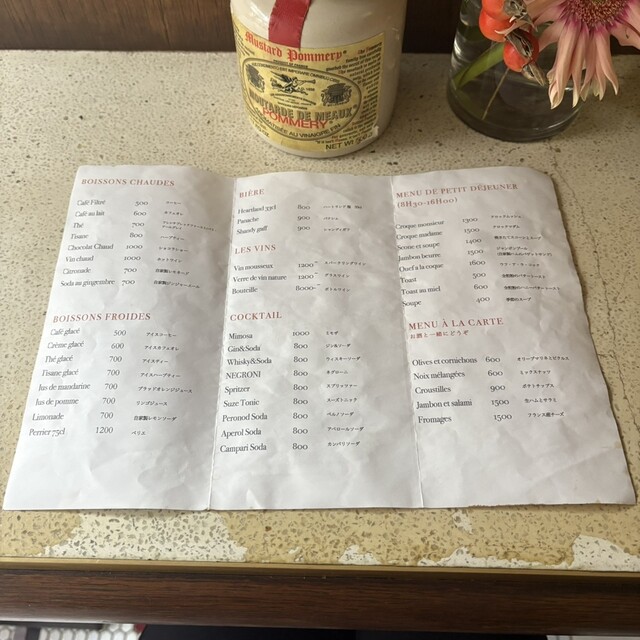 Mustard Pommery
MOUTARDE DE MEAUX
POMMERY
NET W
BOISSONS CHAUDES
Café Filtré 500 コーヒー
Café au lait 600 カフェオレ
Thé 700
Tisane 800 ハーブティー
Chocolat Chaud 1000 ショコラショー
Vin chaud 1000 ホットワイン
Citronade 700 自家製レモネード
Soda au gingembre 700 自家製ジンジャーエール
BOISSONS FROIDES
Café glacé 500 アイスコーヒー
Crème glacé 600 アイスカフェオレ
Thé glacé 700 アイスティー
Tisane glacé 700 アイスハーブティー
Jus de mandarine 700 ブラッドオレンジジュース
Jus de pomme 700 リンゴジュース
Limonade 700 自家製レモンソーダ
Perrier 75cl 1200 ペリエ
BIÈRE
Heartland 33cl 800
Panaché 900 パナシェ
Shandy gaff 900 シャンディガフ
LES VINS
Vin mousseux 1200~ スパークリングワイン
Verre de vin nature 1200~ グラスワイン
Bouteille 8000~ ボトルワイン
COCKTAIL
Mimosa 1000 ミモザ
Gin&Soda 800 ジンソーダ
Whisky&Soda 800 ウィスキーソーダ
NEGRONI 800 ネグローニ
Spritzer 800 スプリッツァー
Suze Tonic 800 スーズトニック
Peronod Soda 800 ペルノソーダ
Aperol Soda 800 アペロールソーダ
Campari Soda 800 カンパリソーダ
MENU DE PETIT DÉJEUNER
(8H30-16H00)
Croque monsieur 1300 クロックムッシュ
Croque madame 1500 クロックマダム
Soupe 400
Jambon beurre 1500
Oeuf a la coque 1600
Toast 500
Toast au miel 600
MENU À LA CARTE
お酒と一緒にどうぞ
Olives et cornichons 600 オリーブやコルニッション
Noix mélangées 600 ミックスナッツ
Croustilles 900 ポテトチップス
Jambon et salami 1500 生ハムとサラミ
Fromages 1500 フランス産チーズ